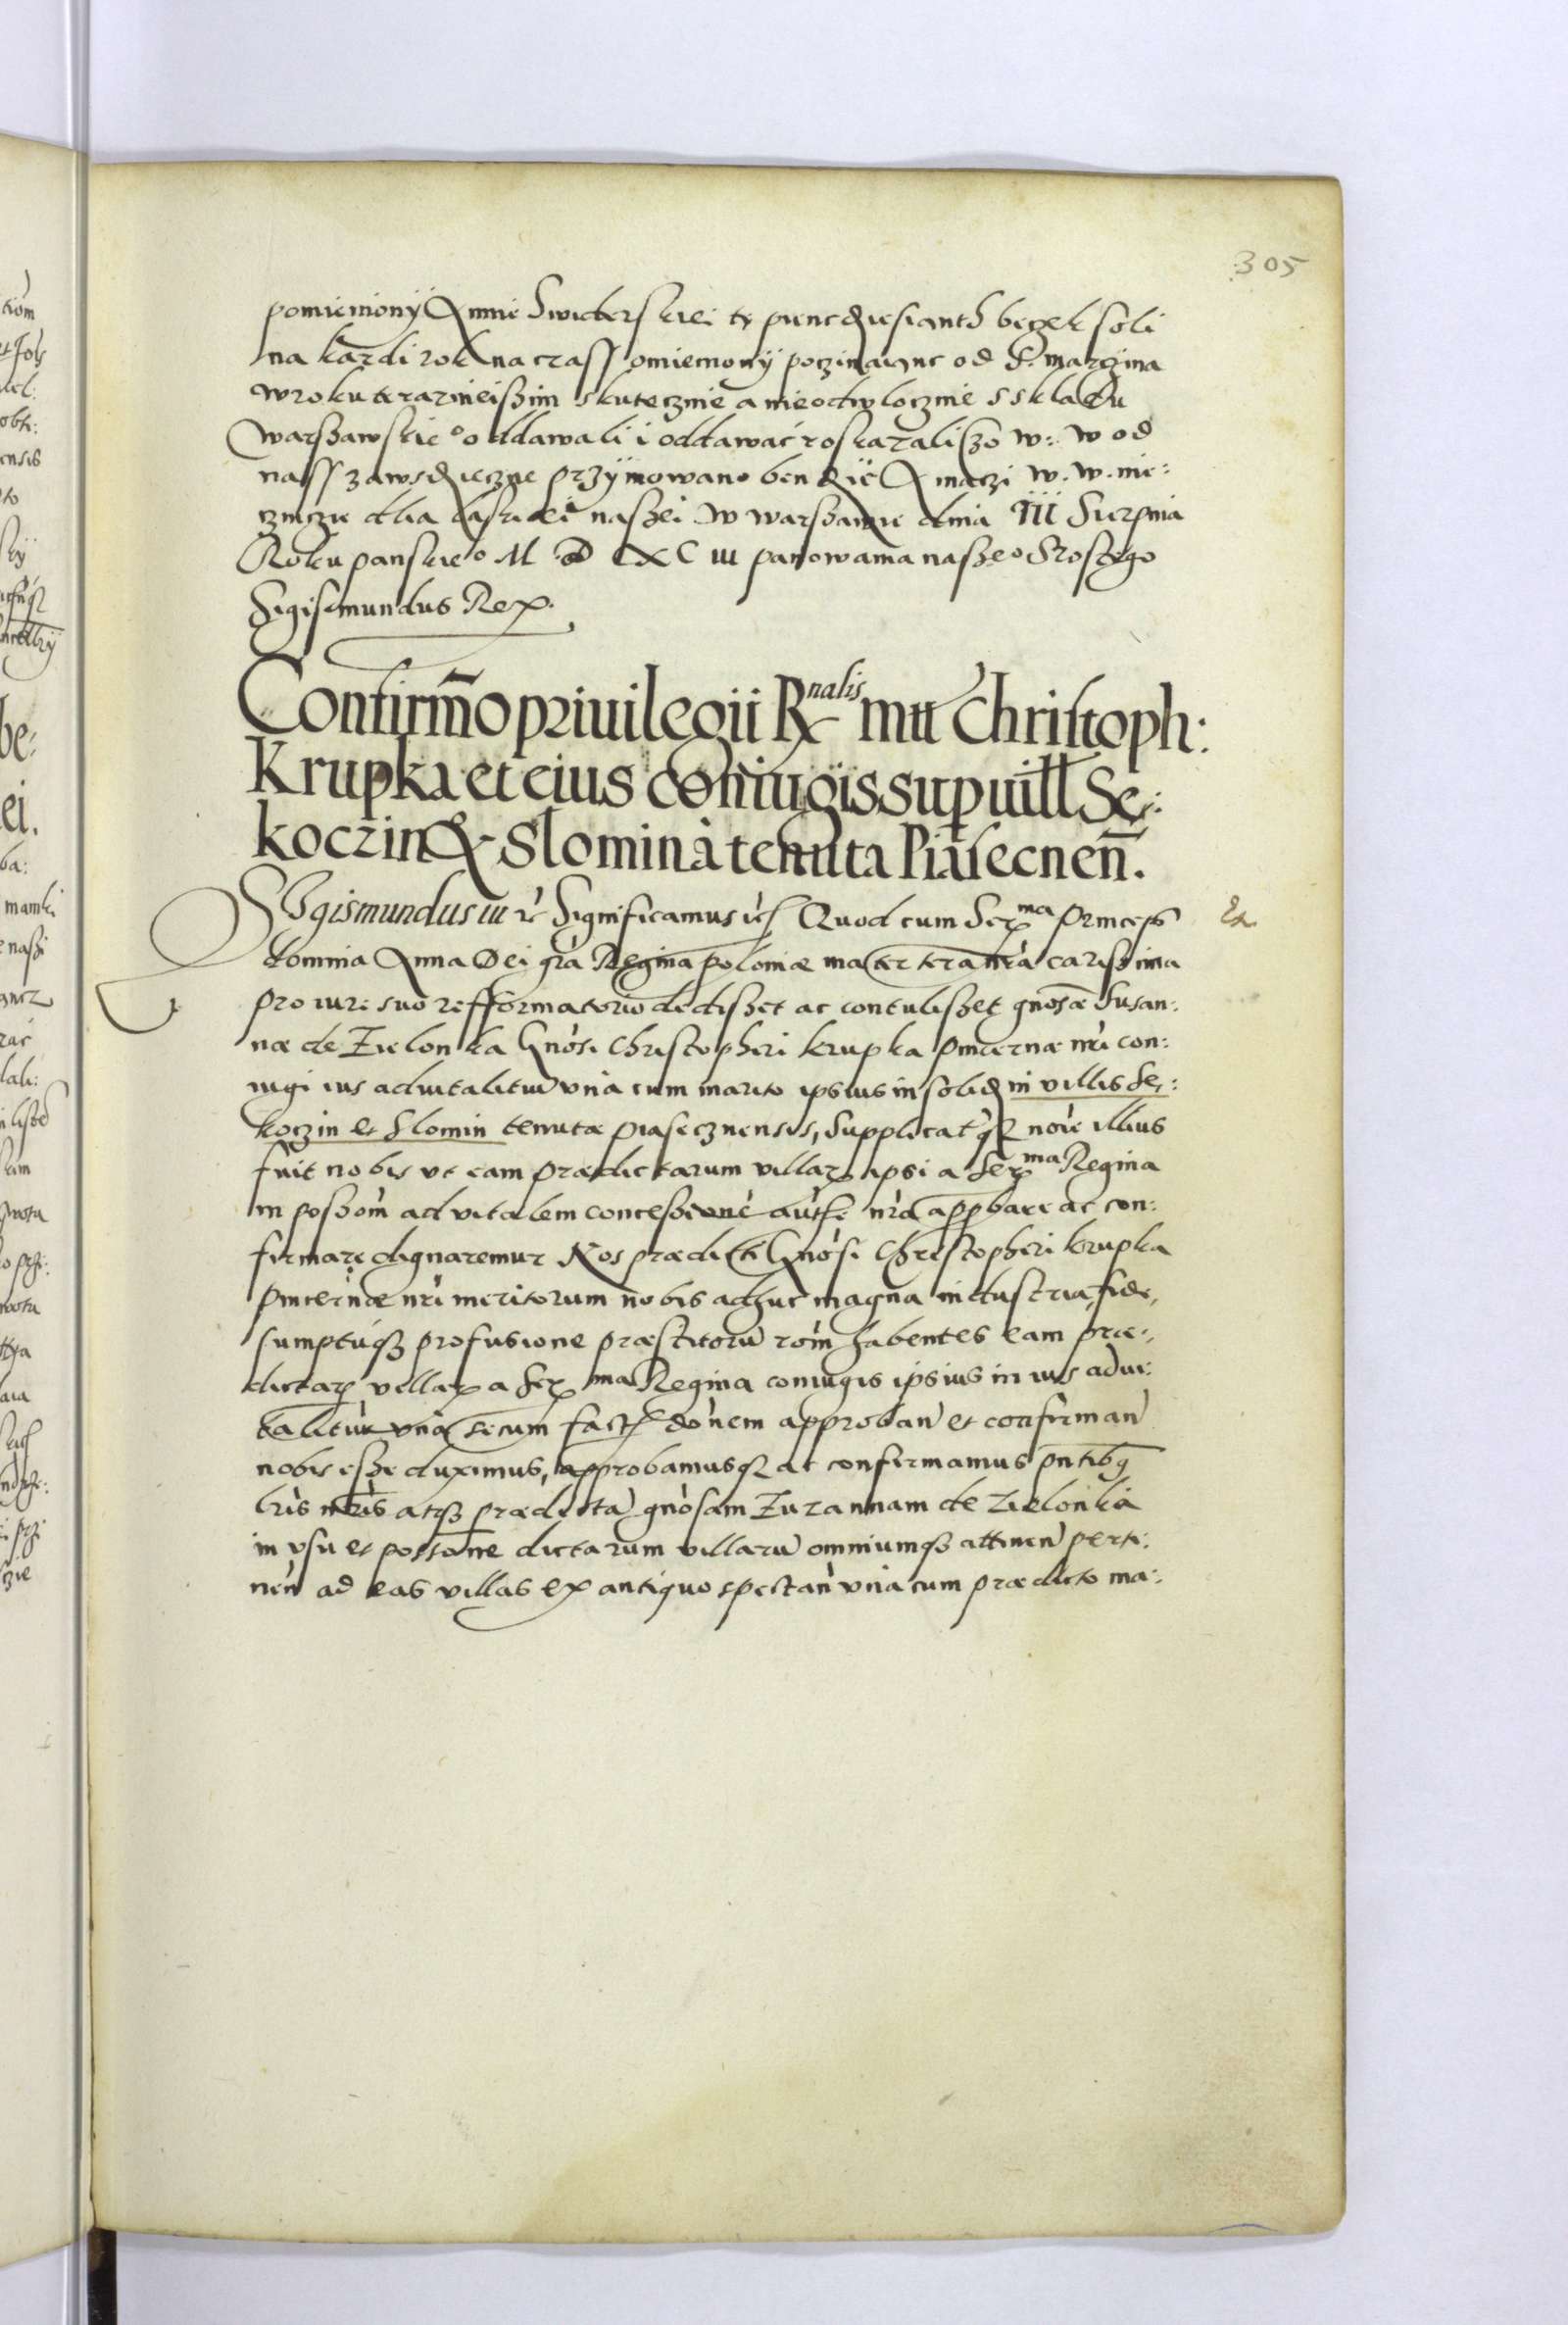 305
pomienionÿ Annie Swiderskiei tę pienczdziesianth beczek soli
na kazdi rok na czass omienionÿ poczinaiąnc od S. Marczina
w roku teraznieiszim skutecznie a nieodwlocznie s skladu
Warszawskie° oddawali i oddawać roskazali czo W: W od
nass zawsdziecznie przÿmowano bendzie A maczi W. W. nie:
czincze dlia laski nasżei W Warszawie dnia III Sierpnia
Roku panskie° M D LXC iii panowania nasze° Szostego
Sigismundus Rex.
Confirmo priuilegii R nalis mtt Christoph:
Krupka et eius coniugis sup vill Se:
koczin & Slomin a tenuta Piasecnen.
Sigismundus iii rc Significamus ic Quod cum Ser ma Princeps
domina Anna Dei gra Regina Poloniæ matertera nra carissima
pro iure suo refformatorio dedisset ac contulisset gnosæ Susan:
næ de Zielonka Gnosi Christopheri Krupka Pincernæ nri con:
iugi ius aduitalitiu una cum marito ipsius in solid in villis Se:
koczin et Slomin tenutæ Piasecznensis, Supplicatq noie illius
fuit nobis ut eam prædictarum villar ipsi a Ser ma Regina
in possom ad vitalem concessione autte nra appbare ac con:
firmare dignaremur Nos prædicti Gnosi Christopheri Krupka
Pincernæ nri meritorum nobis adhuc magna industria, fide,
sumptuq profusione præstitoru rom habentes eam præ:
dictar villar a Ser ma Regina coniugis ipsius in ius adui:
talitiu una secum fact donem approban et confirman
nobis esse duximus, approbamusq ac confirmamus pntibq
lris nris atq prædicta gnosam Zuzannam de Zielonka
in usu et possone dictarum villaru omniumq attinen perti:
nen ad eas villas ex antiquo spectan una cum prædicto ma: